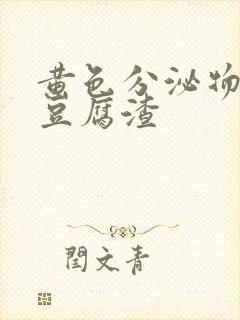 黄色分泌物
豆腐渣
闫文青